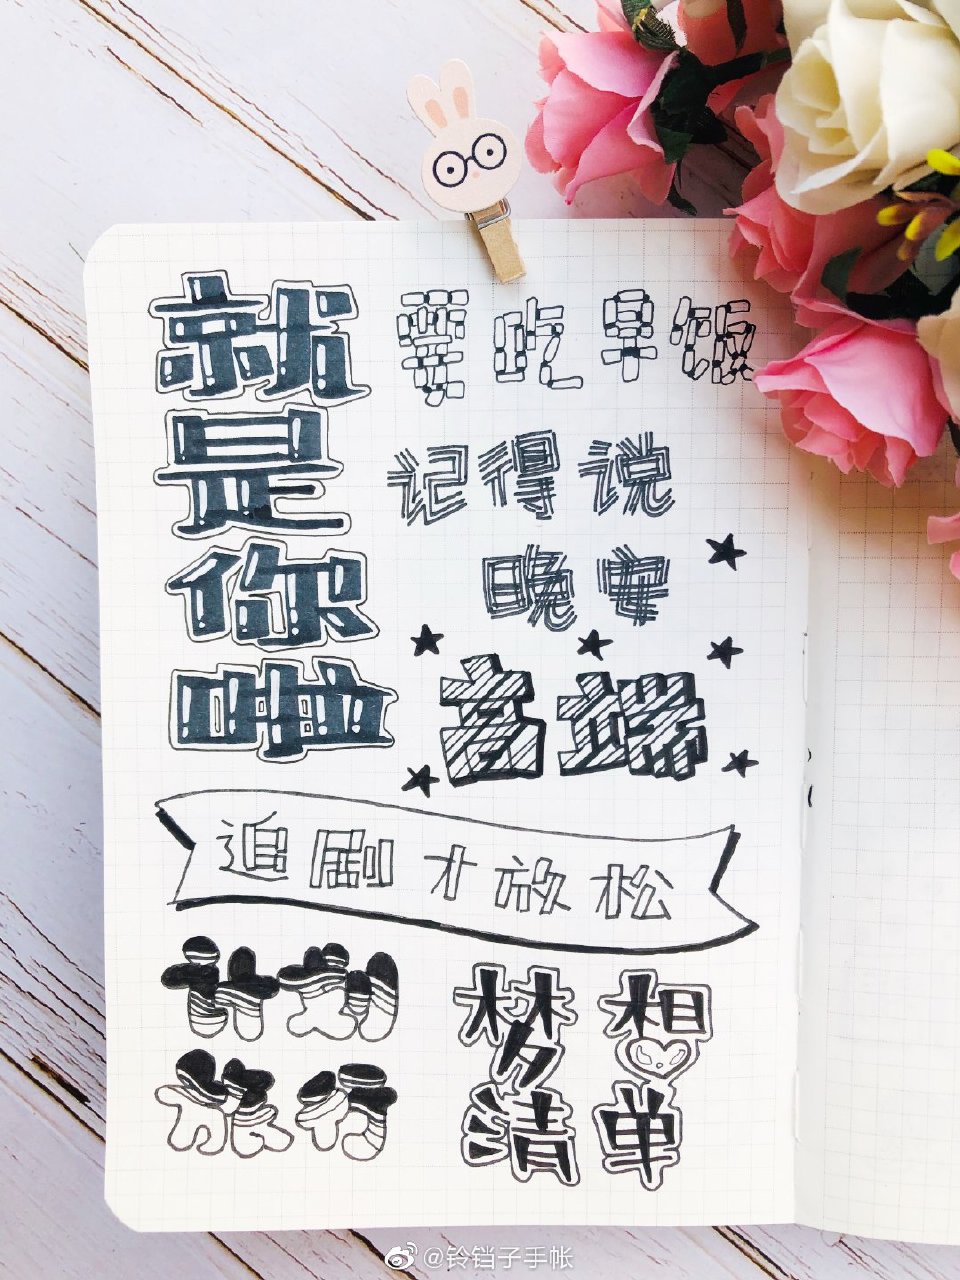 就是你啦
要吃早饭
记得说
晚安
高端
追剧才放松
计划
旅行
梦想
清单
@铃铛子手帐